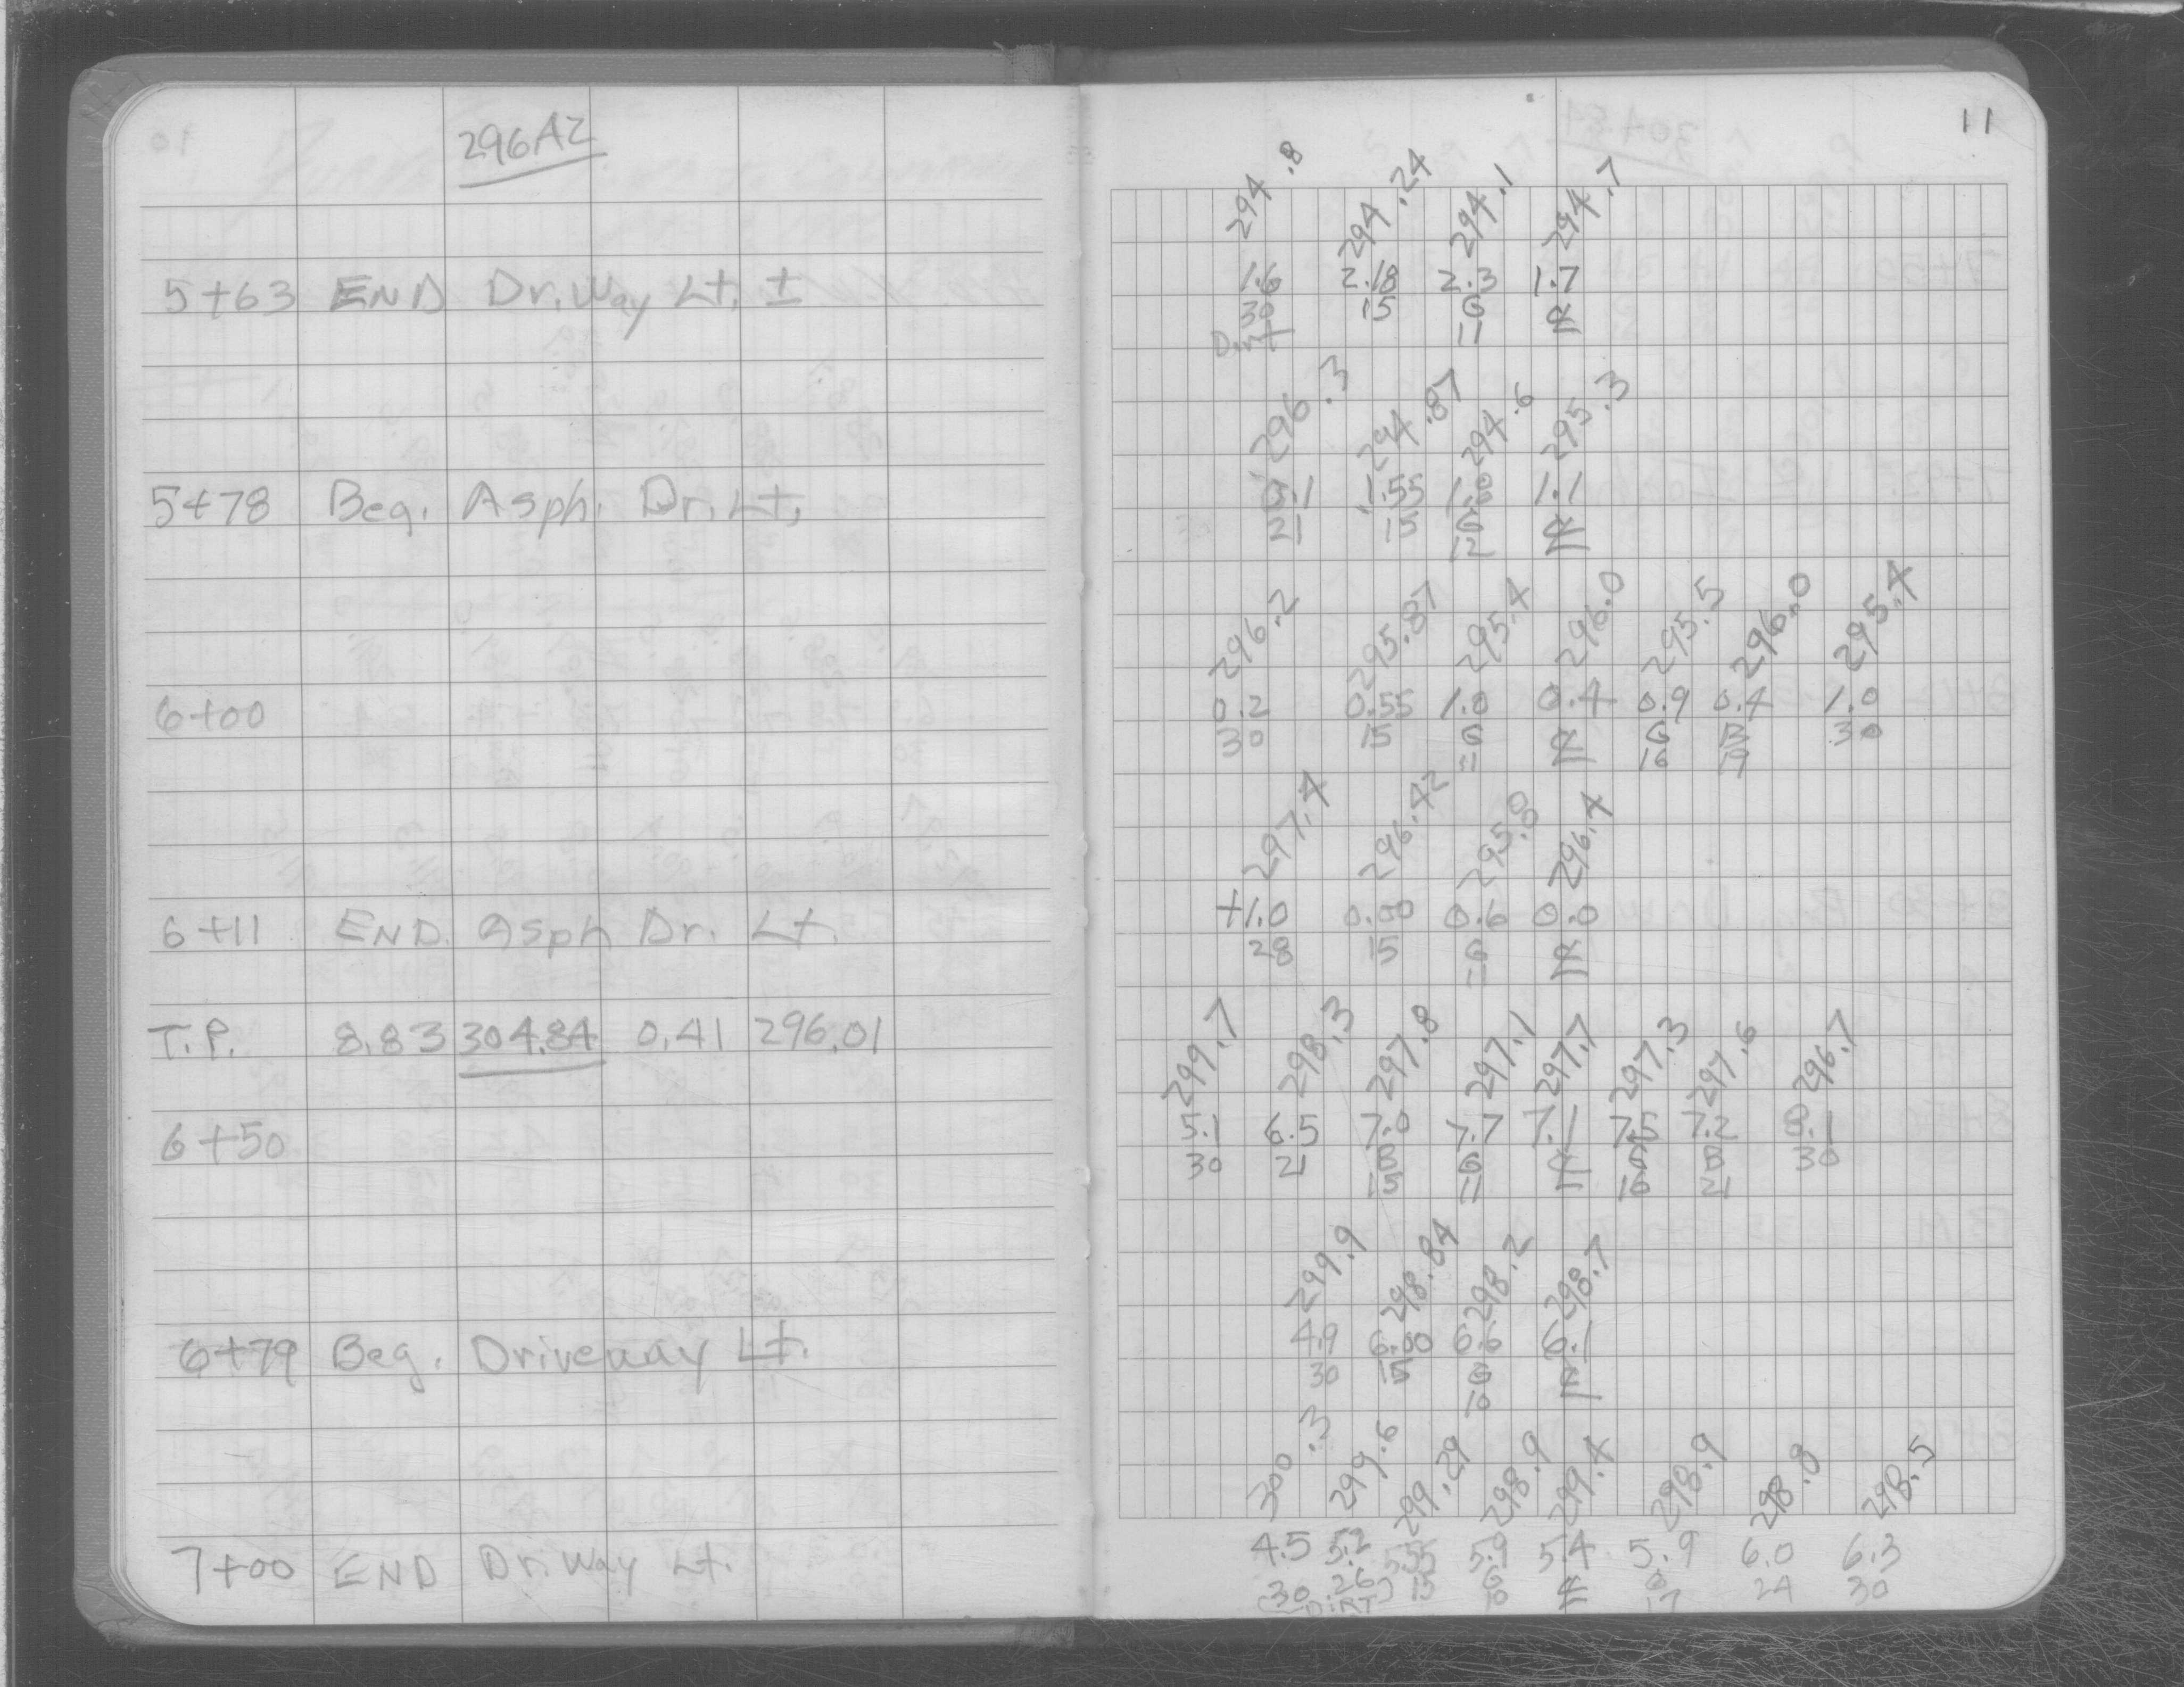 296.42
11
294.8 294.24 294.1 294.7
5+63 END Dr.Way Lt. ± 1.6 2.18 2.3 1.7
30 15 G ℄
Dirt 11
296.3 294.87 294.6 295.3
5+78 Beg. Asph. Dr. Lt. 0.1 1.55 1.8 1.1
21 15 G ℄
12
296.2 295.87 295.4 296.0 295.5 296.0 295.4
6+00 0.2 0.55 1.0 0.4 0.9 0.4 1.0
30 15 G ℄ G B 30
11 16 19
297.4 296.42 295.8 296.4
6+11 END Asph Dr. Lt. +1.0 0.00 0.6 0.0
28 15 G ℄
11
T.P. 8.83 304.84 0.41 296.01
299.7 298.3 297.8 297.1 297.7 297.3 297.6 296.7
6+50 5.1 6.5 7.0 7.7 7.1 7.5 7.2 8.1
30 21 B G ℄ G B 30
15 11 16 21
299.9 298.84 298.2 298.7
6+79 Beg. Driveway Lt. 4.9 6.00 6.6 6.1
30 15 G ℄
10
300.3 299.6 299.29 298.9 299.4 298.9 298.8 298.5
7+00 END Dr.Way Lt. 4.5 5.2 5.55 5.9 5.4 5.9 6.0 6.3
30 26 15 G ℄ G 24 30
DIRT 10 17